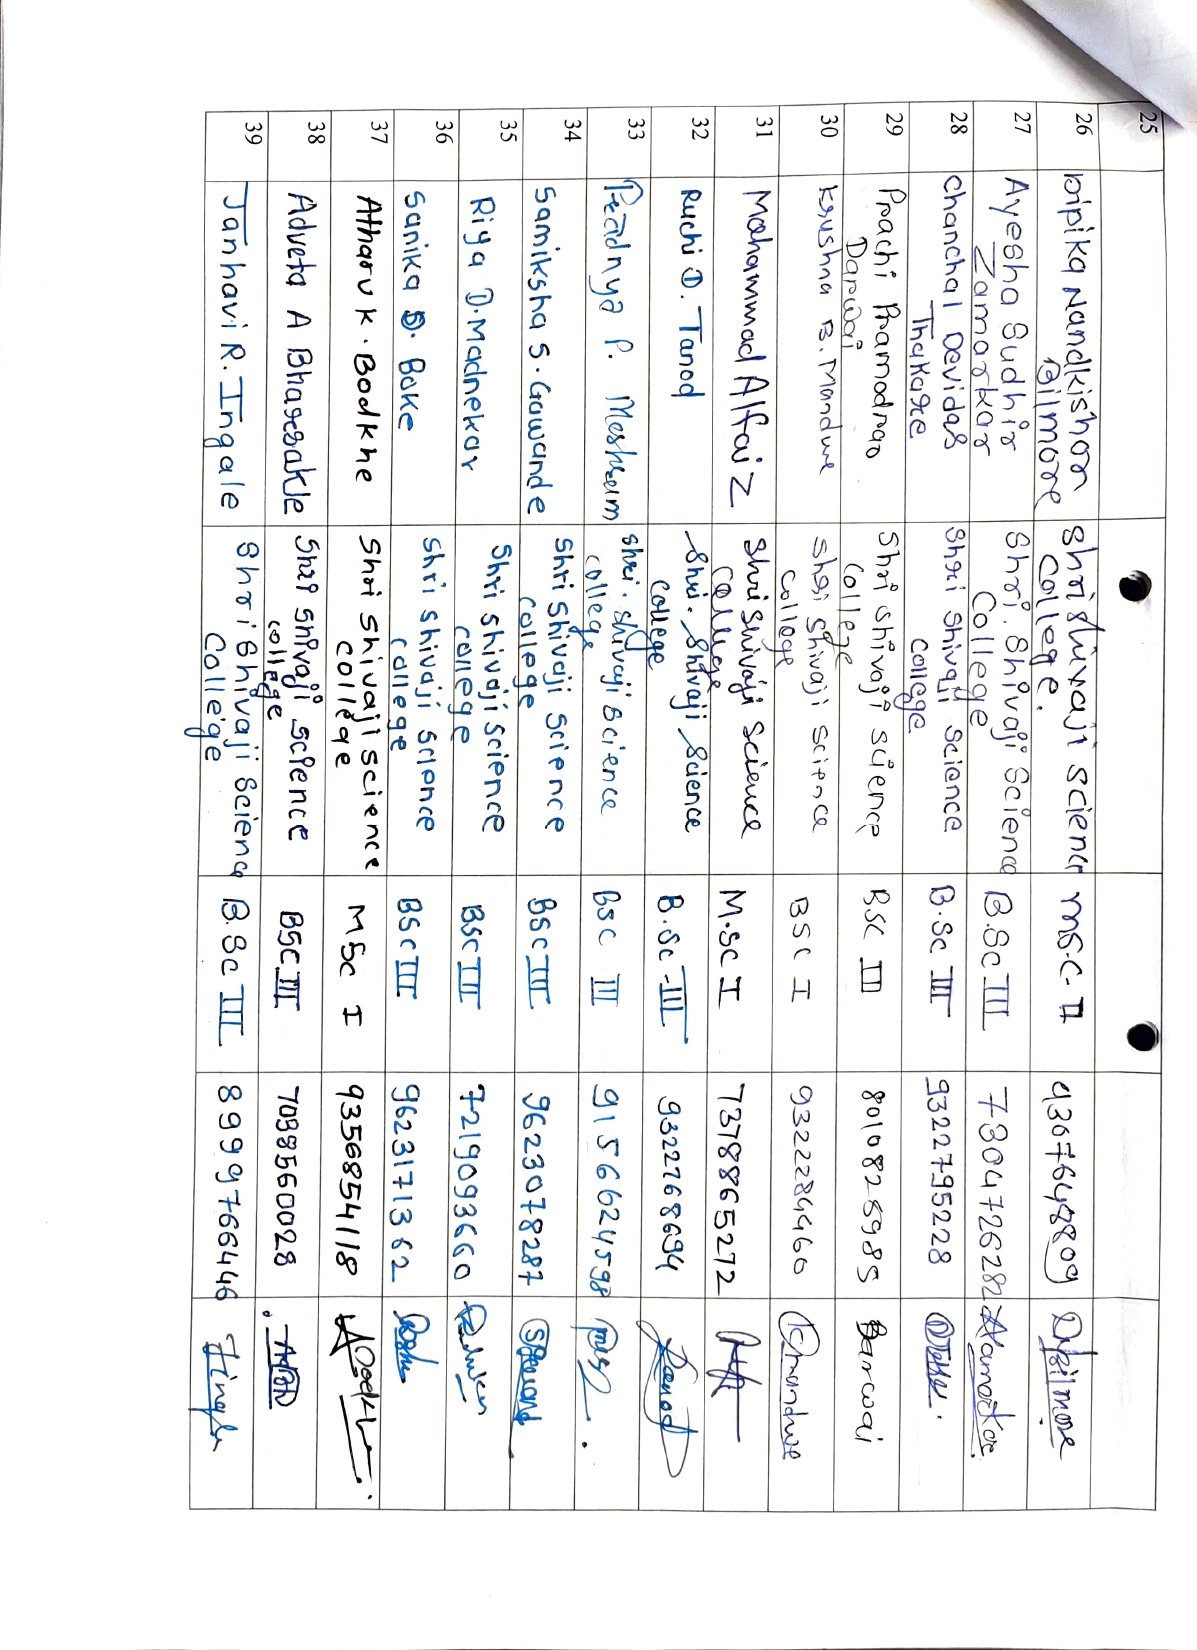 25
26 Dipika Nandkishor Bilmore Shri Shivaji Science College. MSC-II 9307648809 Dbilmore
27 Ayesha Sudhir Zamarkar Shri. Shivaji Science College B.Sc III 7304726282
28 Chanchal Devidas Thakare Shri Shivaji Science College B.Sc III 9322795228
29 Prachi Pramodrao Darwai Shri Shivaji Science College BSC III 8010825985 Barwai
30 Krushna B. Mandwe Shri Shivaji Science College BSC I 9322284460 Kmandwe
31 Mohammad Alfaiz Shri Shivaji Science College M.SC I 7378865272
32 Ruchi D. Tanod Shri. Shivaji Science College B.Sc-III 9322768694 Tanod
33 Pradnya P. Meshram Shri. Shivaji Science College BSC III 9156624598
34 Samiksha S. Gawande Shri Shivaji Science College BSC III 9623078287
35 Riya D. Madnekar Shri Shivaji Science College BSC III 7219093660
36 Sanika D. Bake Shri Shivaji Science College BSC III 9623171362
37 Atharv K. Bodkhe Shri Shivaji Science College MSC I 9356854118
38 Adveta A Bharsakle Shri Shivaji Science College BSC III 7098560028
39 Janhavi R. Ingale Shri Shivaji Science College B.Sc III 8999766446 Jingale